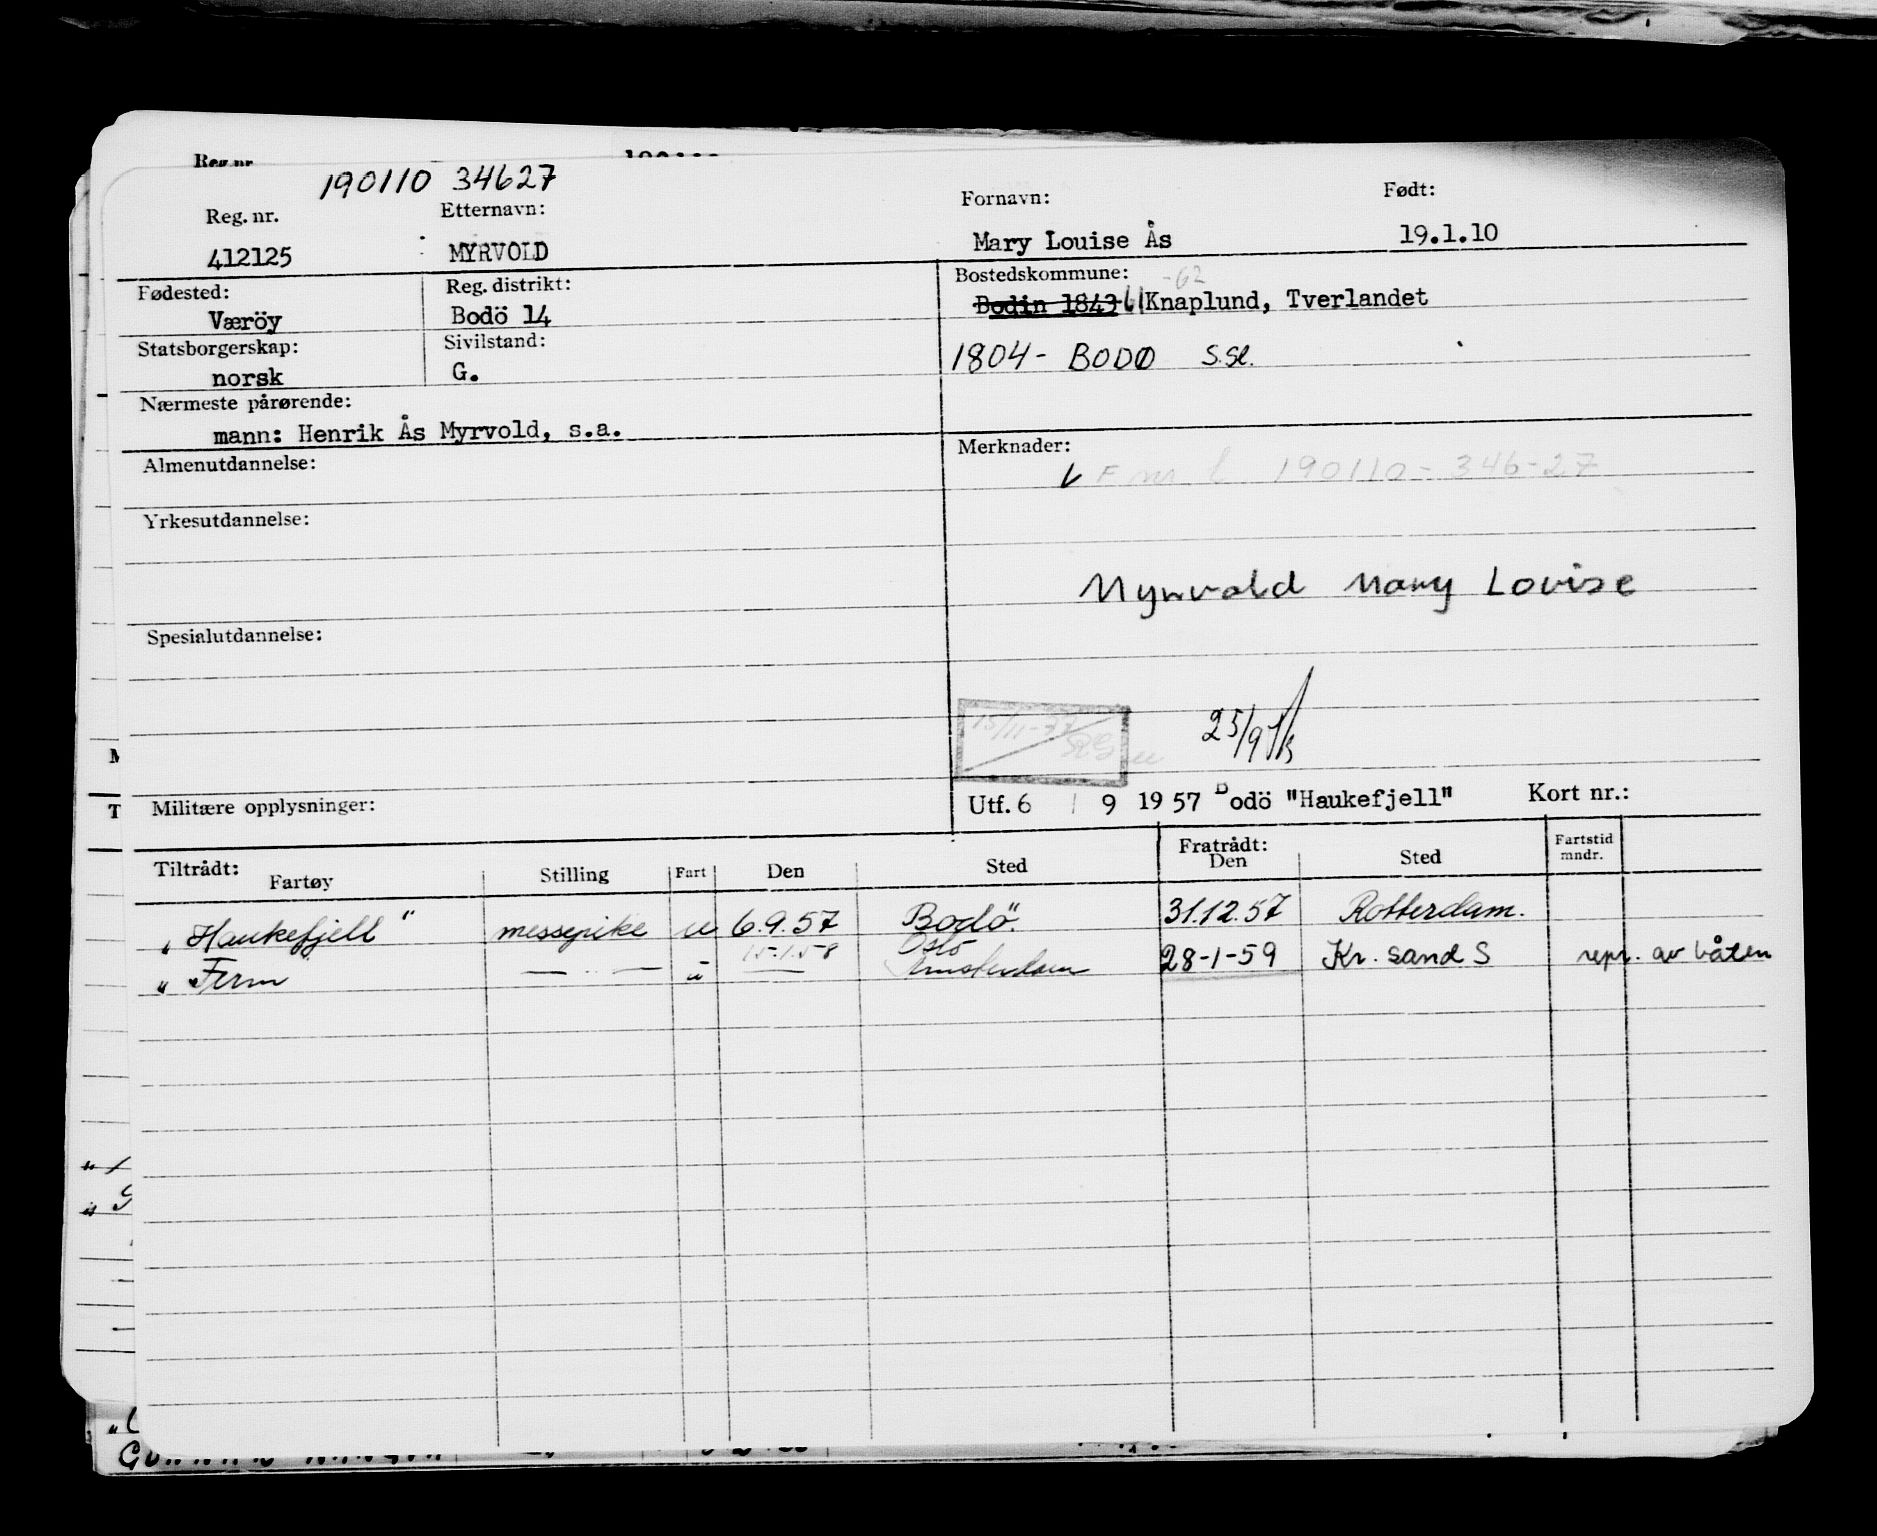 Reg. nr.
190110 34627
Reg. nr. Etternavn: Fornavn: Født:
412125 MYRVOLD Mary Louise Ås 19.1.10
Fødested: Reg. distrikt: Bostedskommune: -62
Væröy Bodö 14 Bodin 1843 61 Knaplund, Tverlandet
Statsborgerskap: Sivilstand:
norsk G. 1804- BODØ S.Sl.
Nærmeste pårørende:
mann: Henrik Ås Myrvold, s.a.
Almenutdannelse: Merknader:
F nr. 190110-346-27
Yrkesutdannelse:
Myrvold Mary Louise
Spesialutdannelse:
15/11-77
25/9
Militære opplysninger: Utf. 6 / 9 1957 Bodö "Haukefjell" Kort nr.:
Tiltrådt: Fratrådt: Fartstid
Fartøy Stilling Fart Den Sted Den Sted mndr.
"Haukefjell" messepike u 6.9.57 Bodö. 31.12.57 Rotterdam.
15.1.58 Oslo
" Fern — " — u — Amsterdam 28-1-59 Kr. sand S repr. av båten